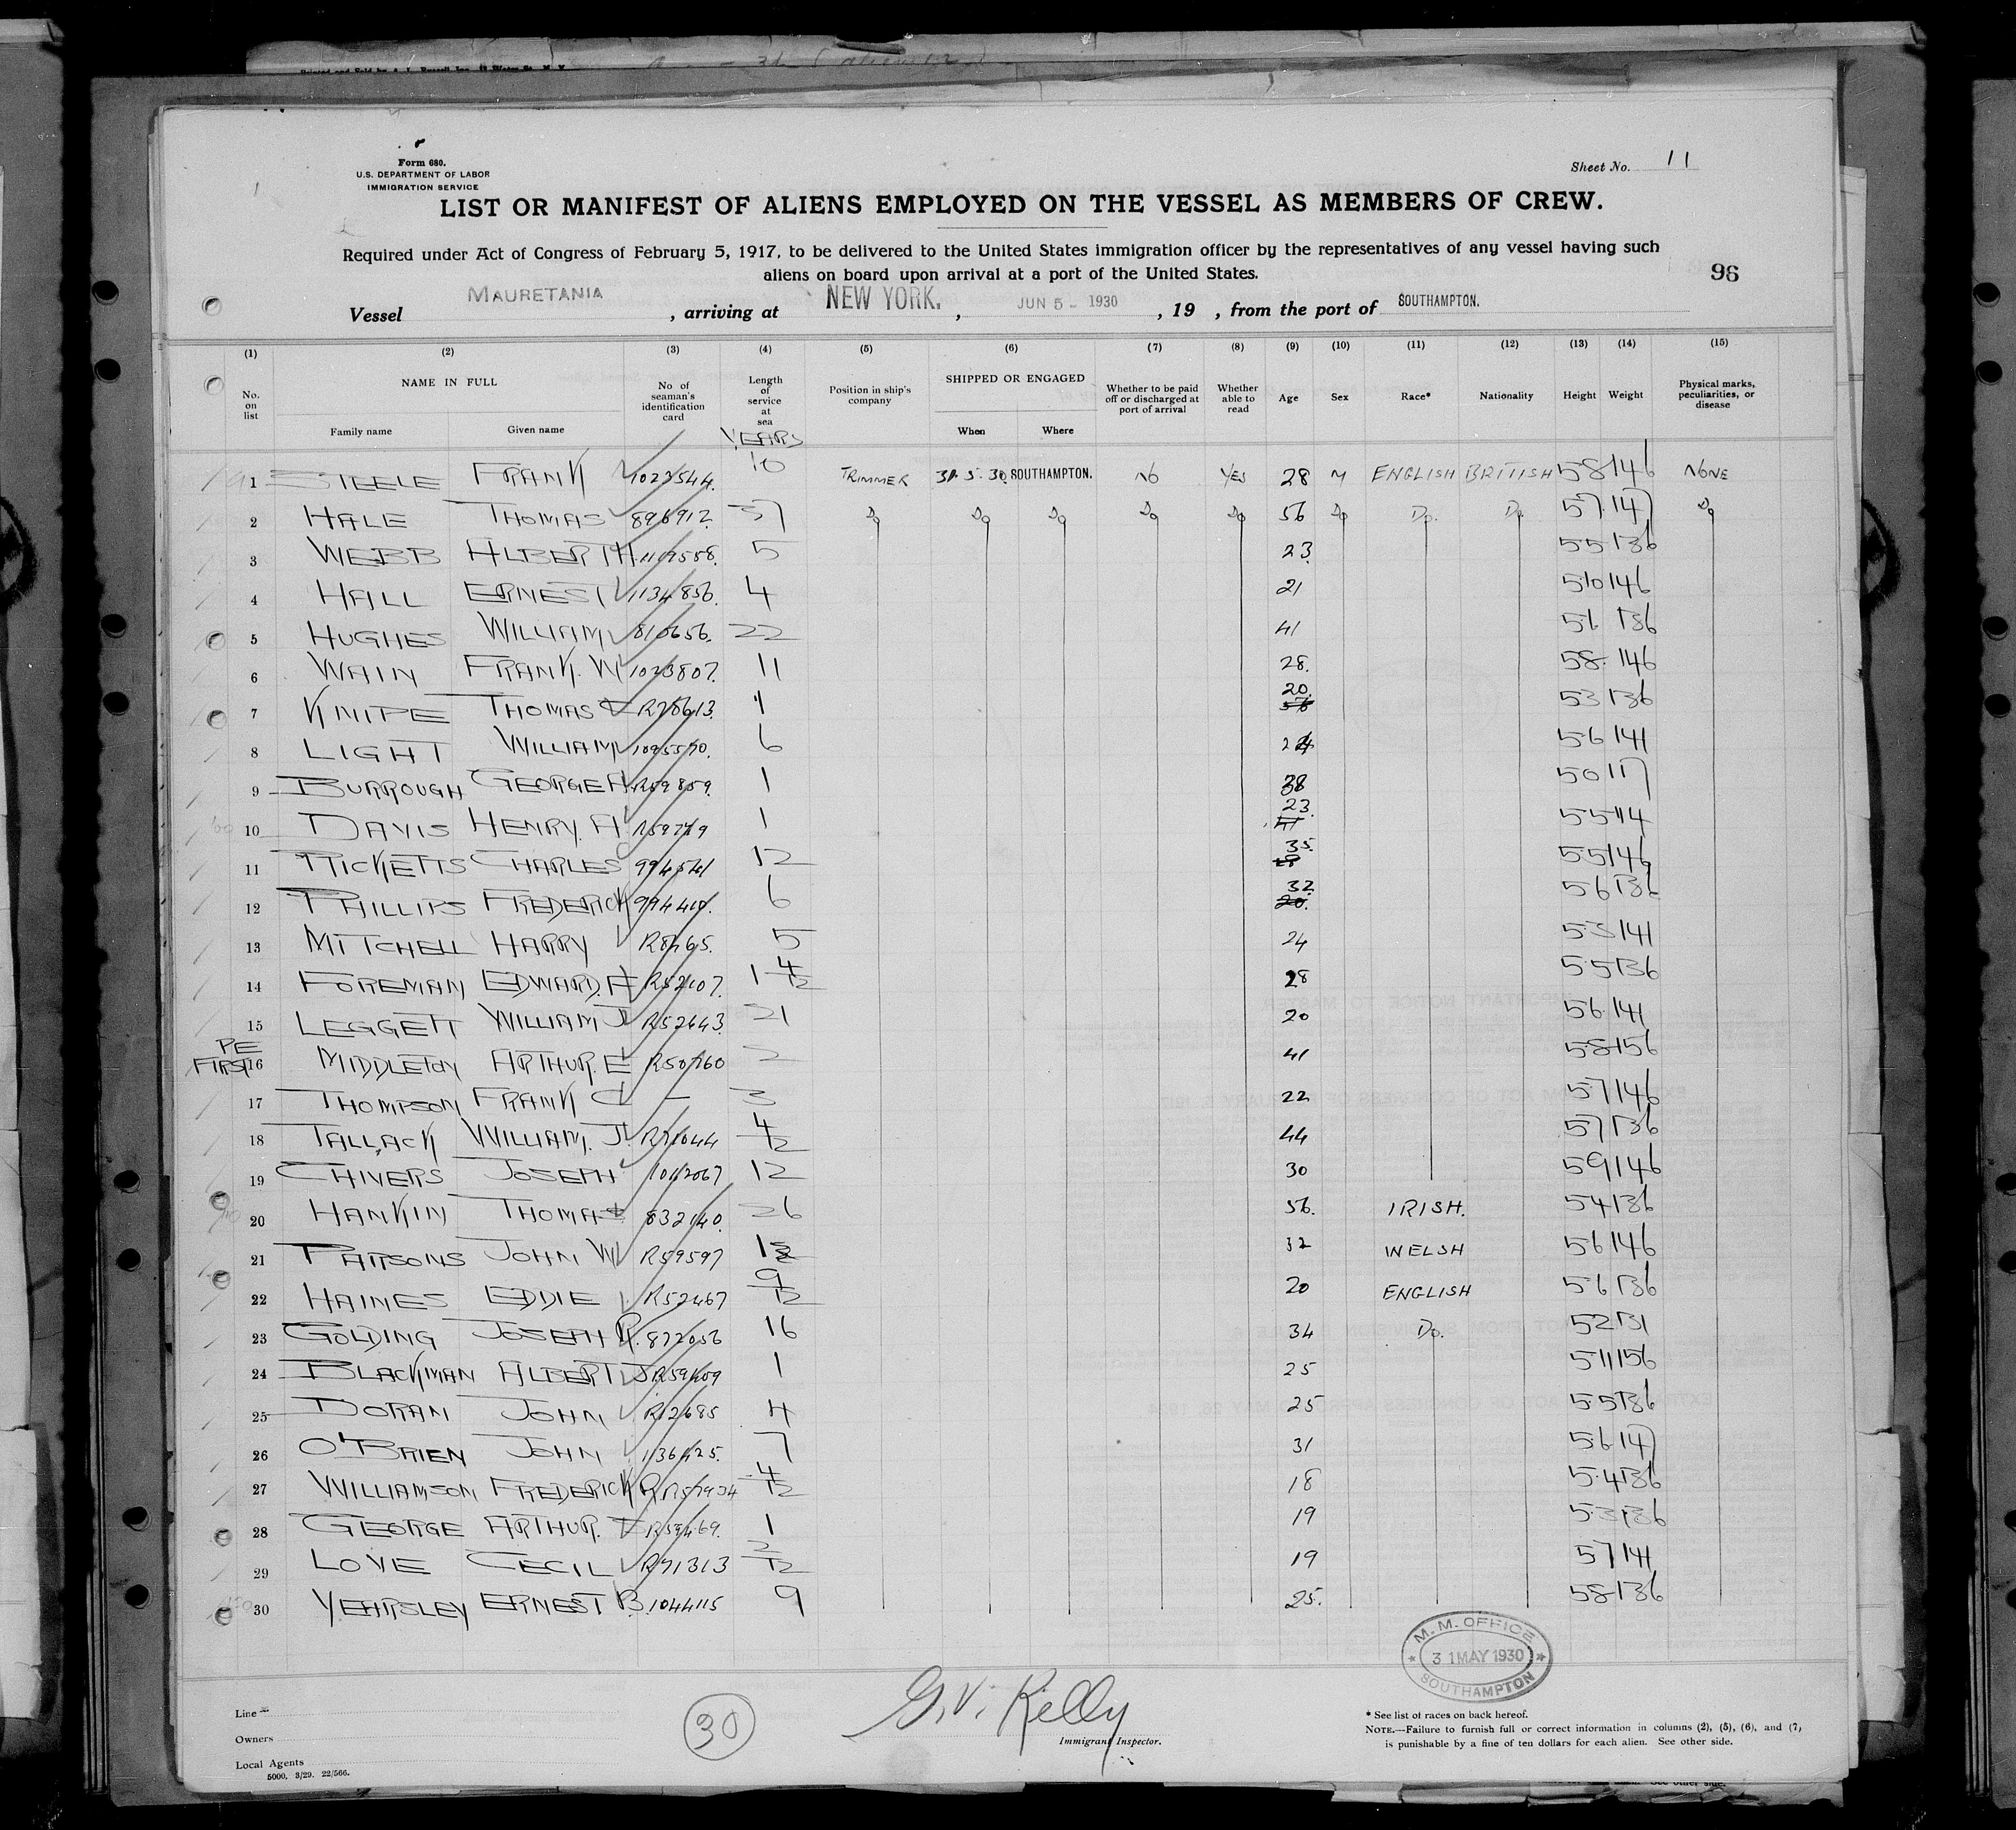 Form 680.
U.S. DEPARTMENT OF LABOR
IMMIGRATION SERVICE
Sheet No. 11
LIST OR MANIFEST OF ALIENS EMPLOYED ON THE VESSEL AS MEMBERS OF CREW.
Required under Act of Congress of February 5, 1917, to be delivered to the United States immigration officer by the representatives of any vessel having such
aliens on board upon arrival at a port of the United States.
96
Vessel MAURETANIA, arriving at NEW YORK., JUN 5 - 1930, 19 , from the port of SOUTHAMPTON.
(1) (2) (3) (4) (5) (6) (7) (8) (9) (10) (11) (12) (13) (14) (15)
No. on list NAME IN FULL Family name Given name No of seaman's identification card Length of service at sea YEARS Position in ship's company SHIPPED OR ENGAGED When Where Whether to be paid off or discharged at port of arrival Whether able to read Age Sex Race* Nationality Height Weight Physical marks, peculiarities, or disease
1 STEELE FRANK 1023544. 10 TRIMMER 31.5.30 SOUTHAMPTON. NO YES 28 M ENGLISH BRITISH 58 146 NONE
2 HALE THOMAS 896912 37 Do Do Do Do Do 56 Do Do. Do. 57 147 Do
3 WEBB ALBERT H 5 23. 55 136
4 HALL ERNEST 1134856. 4 21 510 146
5 HUGHES WILLIAM 810656. 22 41 56 136
6 WAIN FRANK. W 1023807. 11 28. 58. 146
7 KNIPE THOMAS 1 20. 53 136
8 LIGHT WILLIAM 6 24 56 141
9 BURROUGH GEORGE A R59859. 1 38 50 117
10 DAVIS HENRY. A 1 23. 55 114
11 RICKETTS CHARLES 12 35. 55 146
12 PHILLIPS FREDERICK 6 32. 56 136
13 MITCHELL HARRY 5 24 53 141
14 FOREMAN EDWARD. R52107. 1 4/12 28 55 136
15 LEGGETT WILLIAM J R52643. 21 20 56. 141
RE FIRST
16 MIDDLETON ARTHUR. E R50760 2 41 58 156
17 THOMPSON FRANK C — 3 22 57 146
18 TALLACK WILLIAM. J. R71044 4/12 44 57 136
19 CHIVERS JOSEPH 1012067 12 30 59 146
20 HANKIN THOMAS 832140. 26 56. IRISH. 54 136
21 PARSONS JOHN W R59597 32 WELSH 56 146
22 HAINES EDDIE R52467 9/12 20 ENGLISH 56 136
23 GOLDING JOSEPH R. 872056 16 34 Do. 52 131
24 BLACKMAN ALBERT J R59409 1 25 511 156
25 DORAN JOHN R12685 4 25 55 136
26 O'BRIEN JOHN 1136425. 7 31 56 147
27 WILLIAMSON FREDERICK R 4/12 18 54 136
28 GEORGE ARTHUR. 1 19 53 136
29 LOVE CECIL R71313 2/12 19 57 141
30 YEARSLEY ERNEST B. 1044115 9 25. 58 136
M. M. OFFICE
31 MAY 1930
SOUTHAMPTON
Line
Owners
Local Agents
5000. 3/29. 22/566.
30
G. V. Kelly
Immigrant Inspector.
* See list of races on back hereof.
NOTE.—Failure to furnish full or correct information in columns (2), (5), (6), and (7)
is punishable by a fine of ten dollars for each alien. See other side.